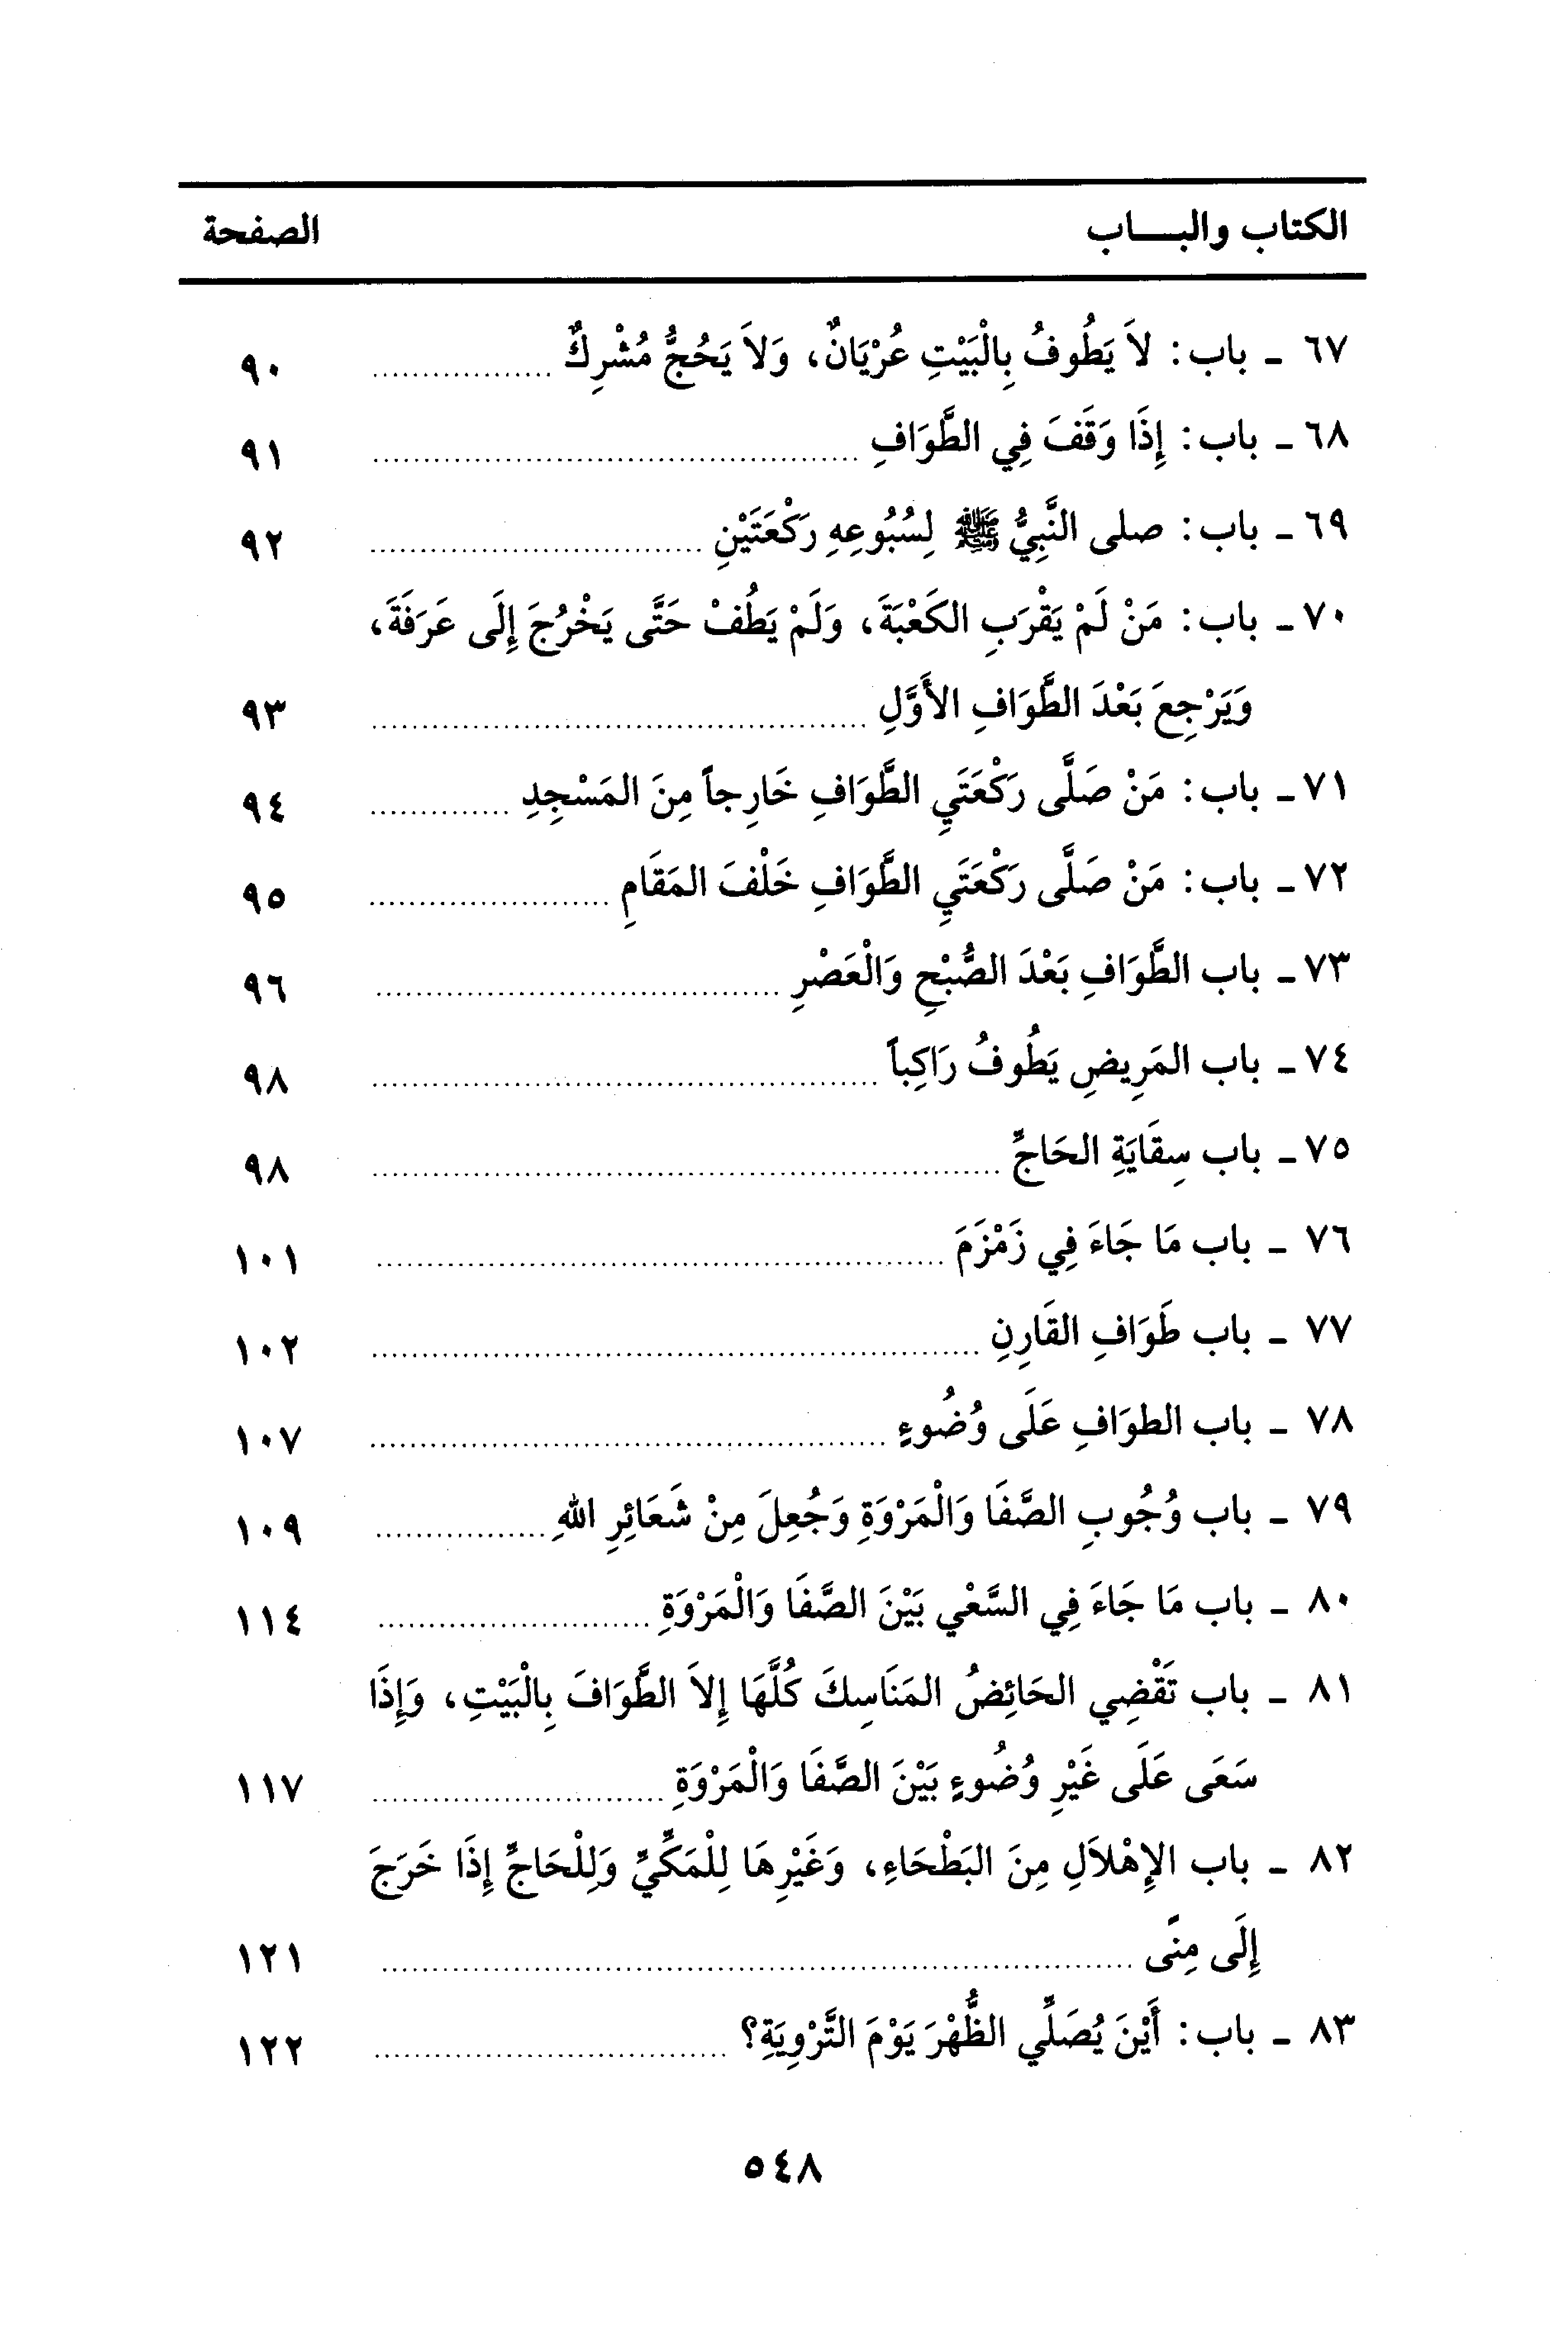 الكتاب والبـــاب الصفحة
٦٧ ـ باب: لاَ يَطُوفُ بِالْبَيْتِ عُرْيَانٌ، وَلاَ يَحُجُّ مُشْرِكٌ ........ ٩٠
٦٨ ـ باب: إِذَا وَقَفَ فِي الطَّوَافِ ........ ٩١
٦٩ ـ باب: صلى النَّبِيُّ ﷺ لِسُبُوعِهِ رَكْعَتَيْنِ ........ ٩٢
٧٠ ـ باب: مَنْ لَمْ يَقْرَبِ الكَعْبَةَ، وَلَمْ يَطُفْ حَتَّى يَخْرُجَ إِلَى عَرَفَةَ،
وَيَرْجِعَ بَعْدَ الطَّوَافِ الأَوَّلِ ........ ٩٣
٧١ ـ باب: مَنْ صَلَّى رَكْعَتَيِ الطَّوَافِ خَارِجاً مِنَ المَسْجِدِ ........ ٩٤
٧٢ ـ باب: مَنْ صَلَّى رَكْعَتَيِ الطَّوَافِ خَلْفَ المَقَامِ ........ ٩٥
٧٣ ـ باب الطَّوَافِ بَعْدَ الصُّبْحِ وَالْعَصْرِ ........ ٩٦
٧٤ ـ باب المَرِيضِ يَطُوفُ رَاكِباً ........ ٩٨
٧٥ ـ باب سِقَايَةِ الحَاجِّ ........ ٩٨
٧٦ ـ باب مَا جَاءَ فِي زَمْزَمَ ........ ١٠١
٧٧ ـ باب طَوَافِ القَارِنِ ........ ١٠٢
٧٨ ـ باب الطوَافِ عَلَى وُضُوءٍ ........ ١٠٧
٧٩ ـ باب وُجُوبِ الصَّفَا وَالْمَرْوَةِ وَجُعِلَ مِنْ شَعَائِرِ اللهِ ........ ١٠٩
٨٠ ـ باب مَا جَاءَ فِي السَّعْي بَيْنَ الصَّفَا وَالْمَرْوَةِ ........ ١١٤
٨١ ـ باب تَقْضِي الحَائِضُ المَنَاسِكَ كُلَّهَا إِلاَ الطَّوَافَ بِالْبَيْتِ، وَإِذَا
سَعَى عَلَى غَيْرِ وُضُوءٍ بَيْنَ الصَّفَا وَالْمَرْوَةِ ........ ١١٧
٨٢ ـ باب الإِهْلاَلِ مِنَ البَطْحَاءِ، وَغَيْرِهَا لِلْمَكِّيِّ وَلِلْحَاجِّ إِذَا خَرَجَ
إِلَى مِنًى ........ ١٢١
٨٣ ـ باب: أَيْنَ يُصَلِّي الظُّهْرَ يَوْمَ التَّرْوِيَةِ؟ ........ ١٢٢
٥٤٨